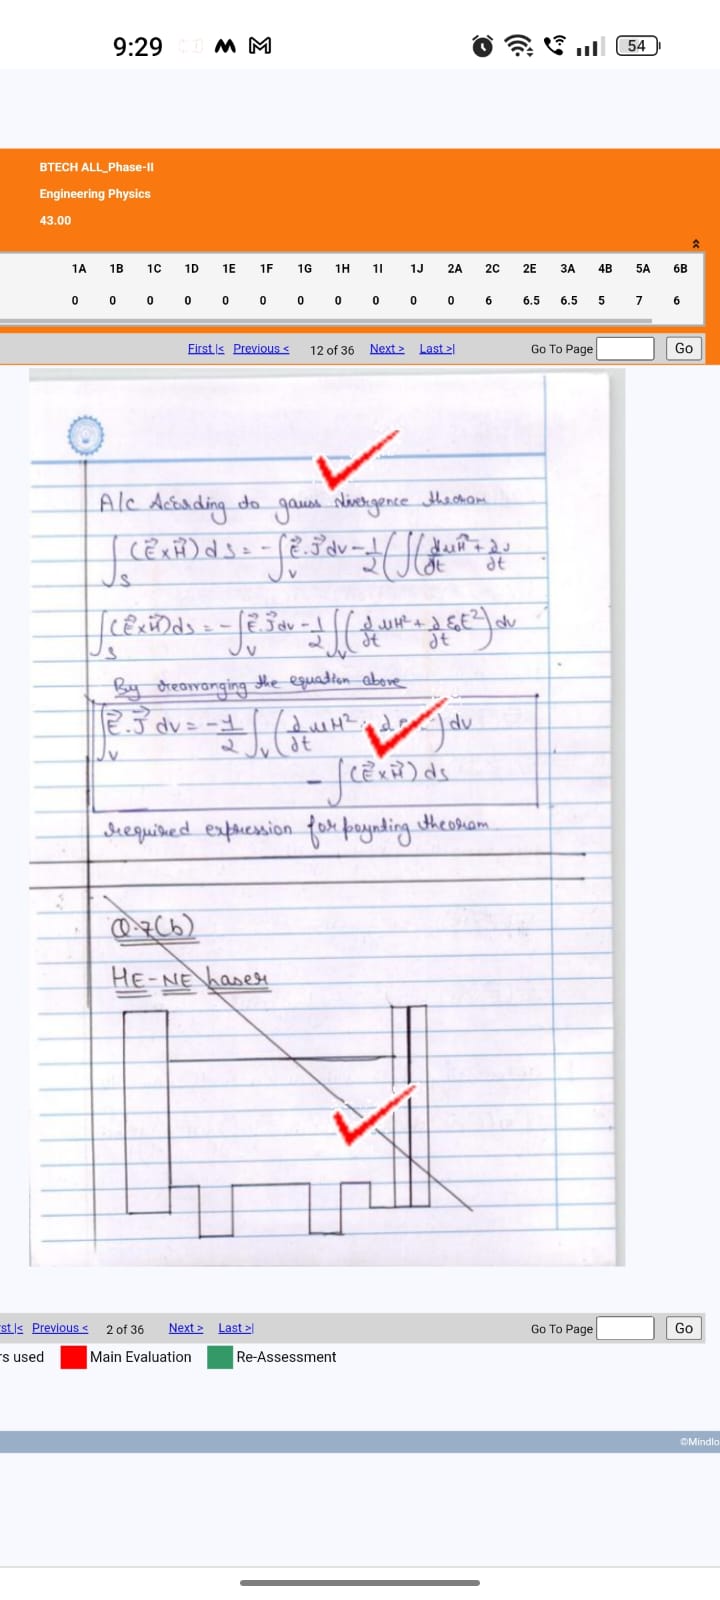 9:29
54
BTECH ALL_Phase-II
Engineering Physics
43.00
1A 1B 1C 1D 1E 1F 1G 1H 1I 1J 2A 2C 2E 3A 4B 5A 6B
0 0 0 0 0 0 0 0 0 0 0 6 6.5 6.5 5 7 6
First |< Previous < 12 of 36 Next > Last >| Go To Page Go
A/c According to gauss divergence theorom
∫S (E⃗×H⃗) ds = - ∫V E⃗.J⃗ dv - 1/2 (∫∫ (d/dt μH² + ∂
∂t
∫S (E⃗×H⃗) ds = - ∫V E⃗.J⃗ dv - 1/2 ∫∫V (∂/∂t μH² + ∂/∂t ε₀E²) dv
By rearranging the equation above
∫V E⃗.J⃗ dv = - 1/2 ∫V (∂/∂t μH² ) dv
- ∫ (E⃗×H⃗) ds
required expression for poynting theorom
Q.7(b)
HE-NE laser
st |< Previous < 2 of 36 Next > Last >| Go To Page Go
rs used Main Evaluation Re-Assessment
©Mindlo